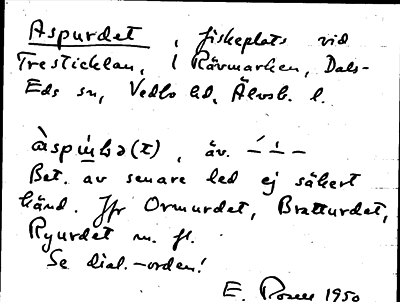 Aspurdet, fiskeplats vid
Tresticklan, i Rävmarken, Dals-
Eds sn, Vedbo hd, Älvsb. l.
(t), äv.
Bet. av senare led ej säkert
känd. Jfr Ormurdet, Bratturdet,
Ryurdet m. fl.
Se dial.-orden!
E. Rosell 1950